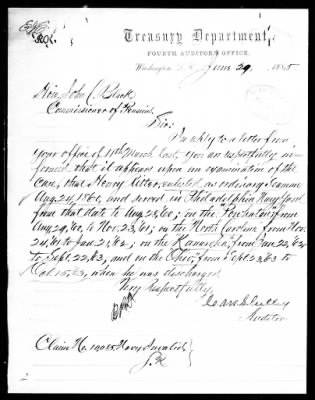 Treasury Department,
FOURTH AUDITOR'S OFFICE.
Washington, D.C., June 29, 1885
Hon. John C. Black
Commissioner of Pensions.
Sir:
In reply to a letter from
your office of 11th March last, you are respectfully in-
formed that it appears upon an examination of the
case, that Henry Ritter, enlisted as ordinary Seaman
Aug. 24, 1860, and served in Philadelphia Navy Yard
from that date to Aug 28, 60; in the "Pocahontas" from
Aug 29, 60, to Nov. 23, 61; in the North Carolina from Nov.
24, 61 to Jan 21, 62; in the Kanawha, from Jan 22, 62
to Sept 22, 63, and on the Ohio, from Sept 23, 63 to
Oct 15, 63, when he was discharged.
Very Respectfully,
Auditor
Claim No. 10985 Navy Invalid